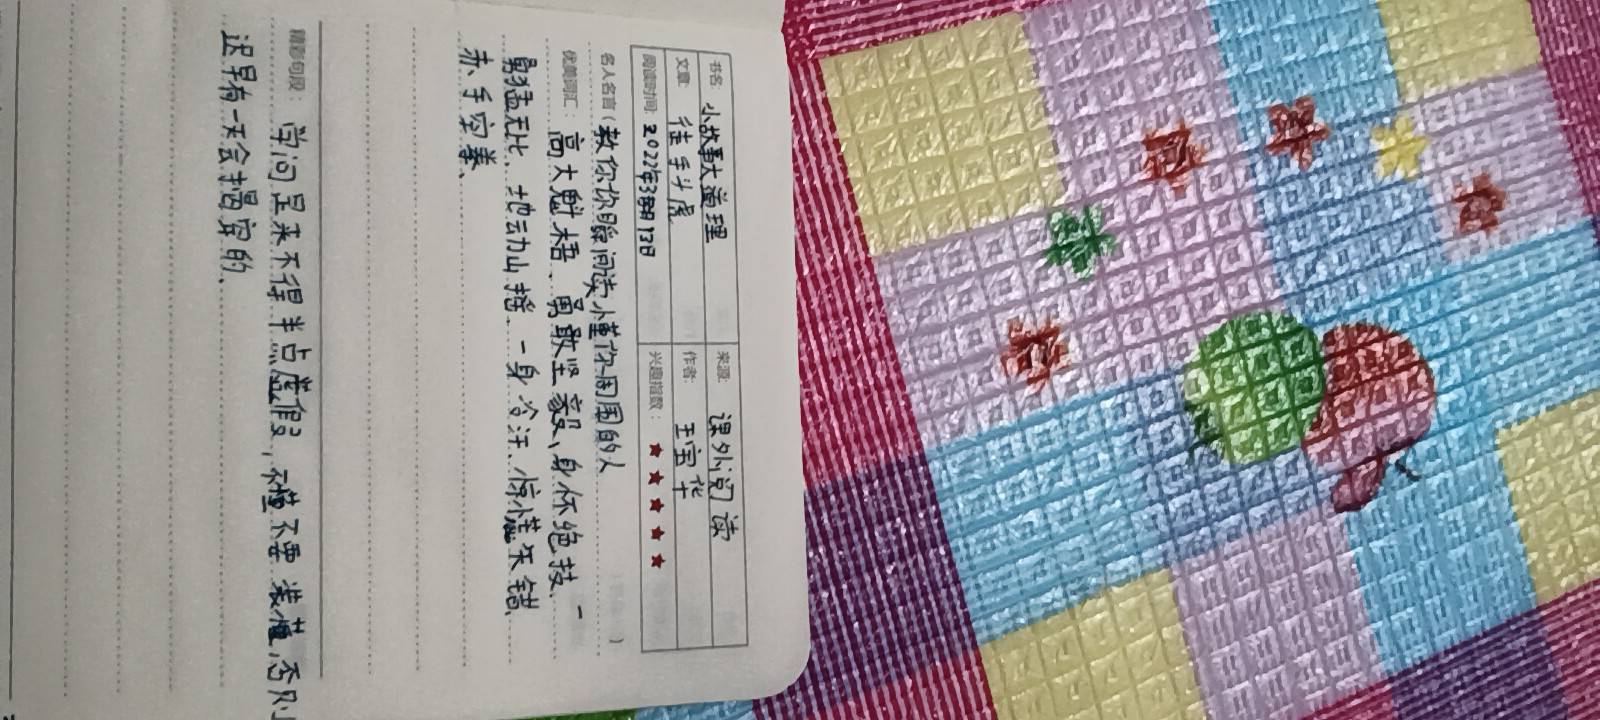 书名: 小故事大道理 来源: 课外阅读
文章: 徒手斗虎 作者: 王宝华
阅读时间: 2022年3月13日 兴趣指数: ★★★★★
名人名言(教你你瞬间读懂你周围的人)
优美词汇: 高大魁梧、勇敢坚毅、身怀绝技、一
勇猛无比、地动山摇、一身冷汗、惊慌失错、
赤、手空拳、
精彩句段: 学问是来不得半点虚假,不懂不要装懂,否则
迟早有一天会揭穿的、